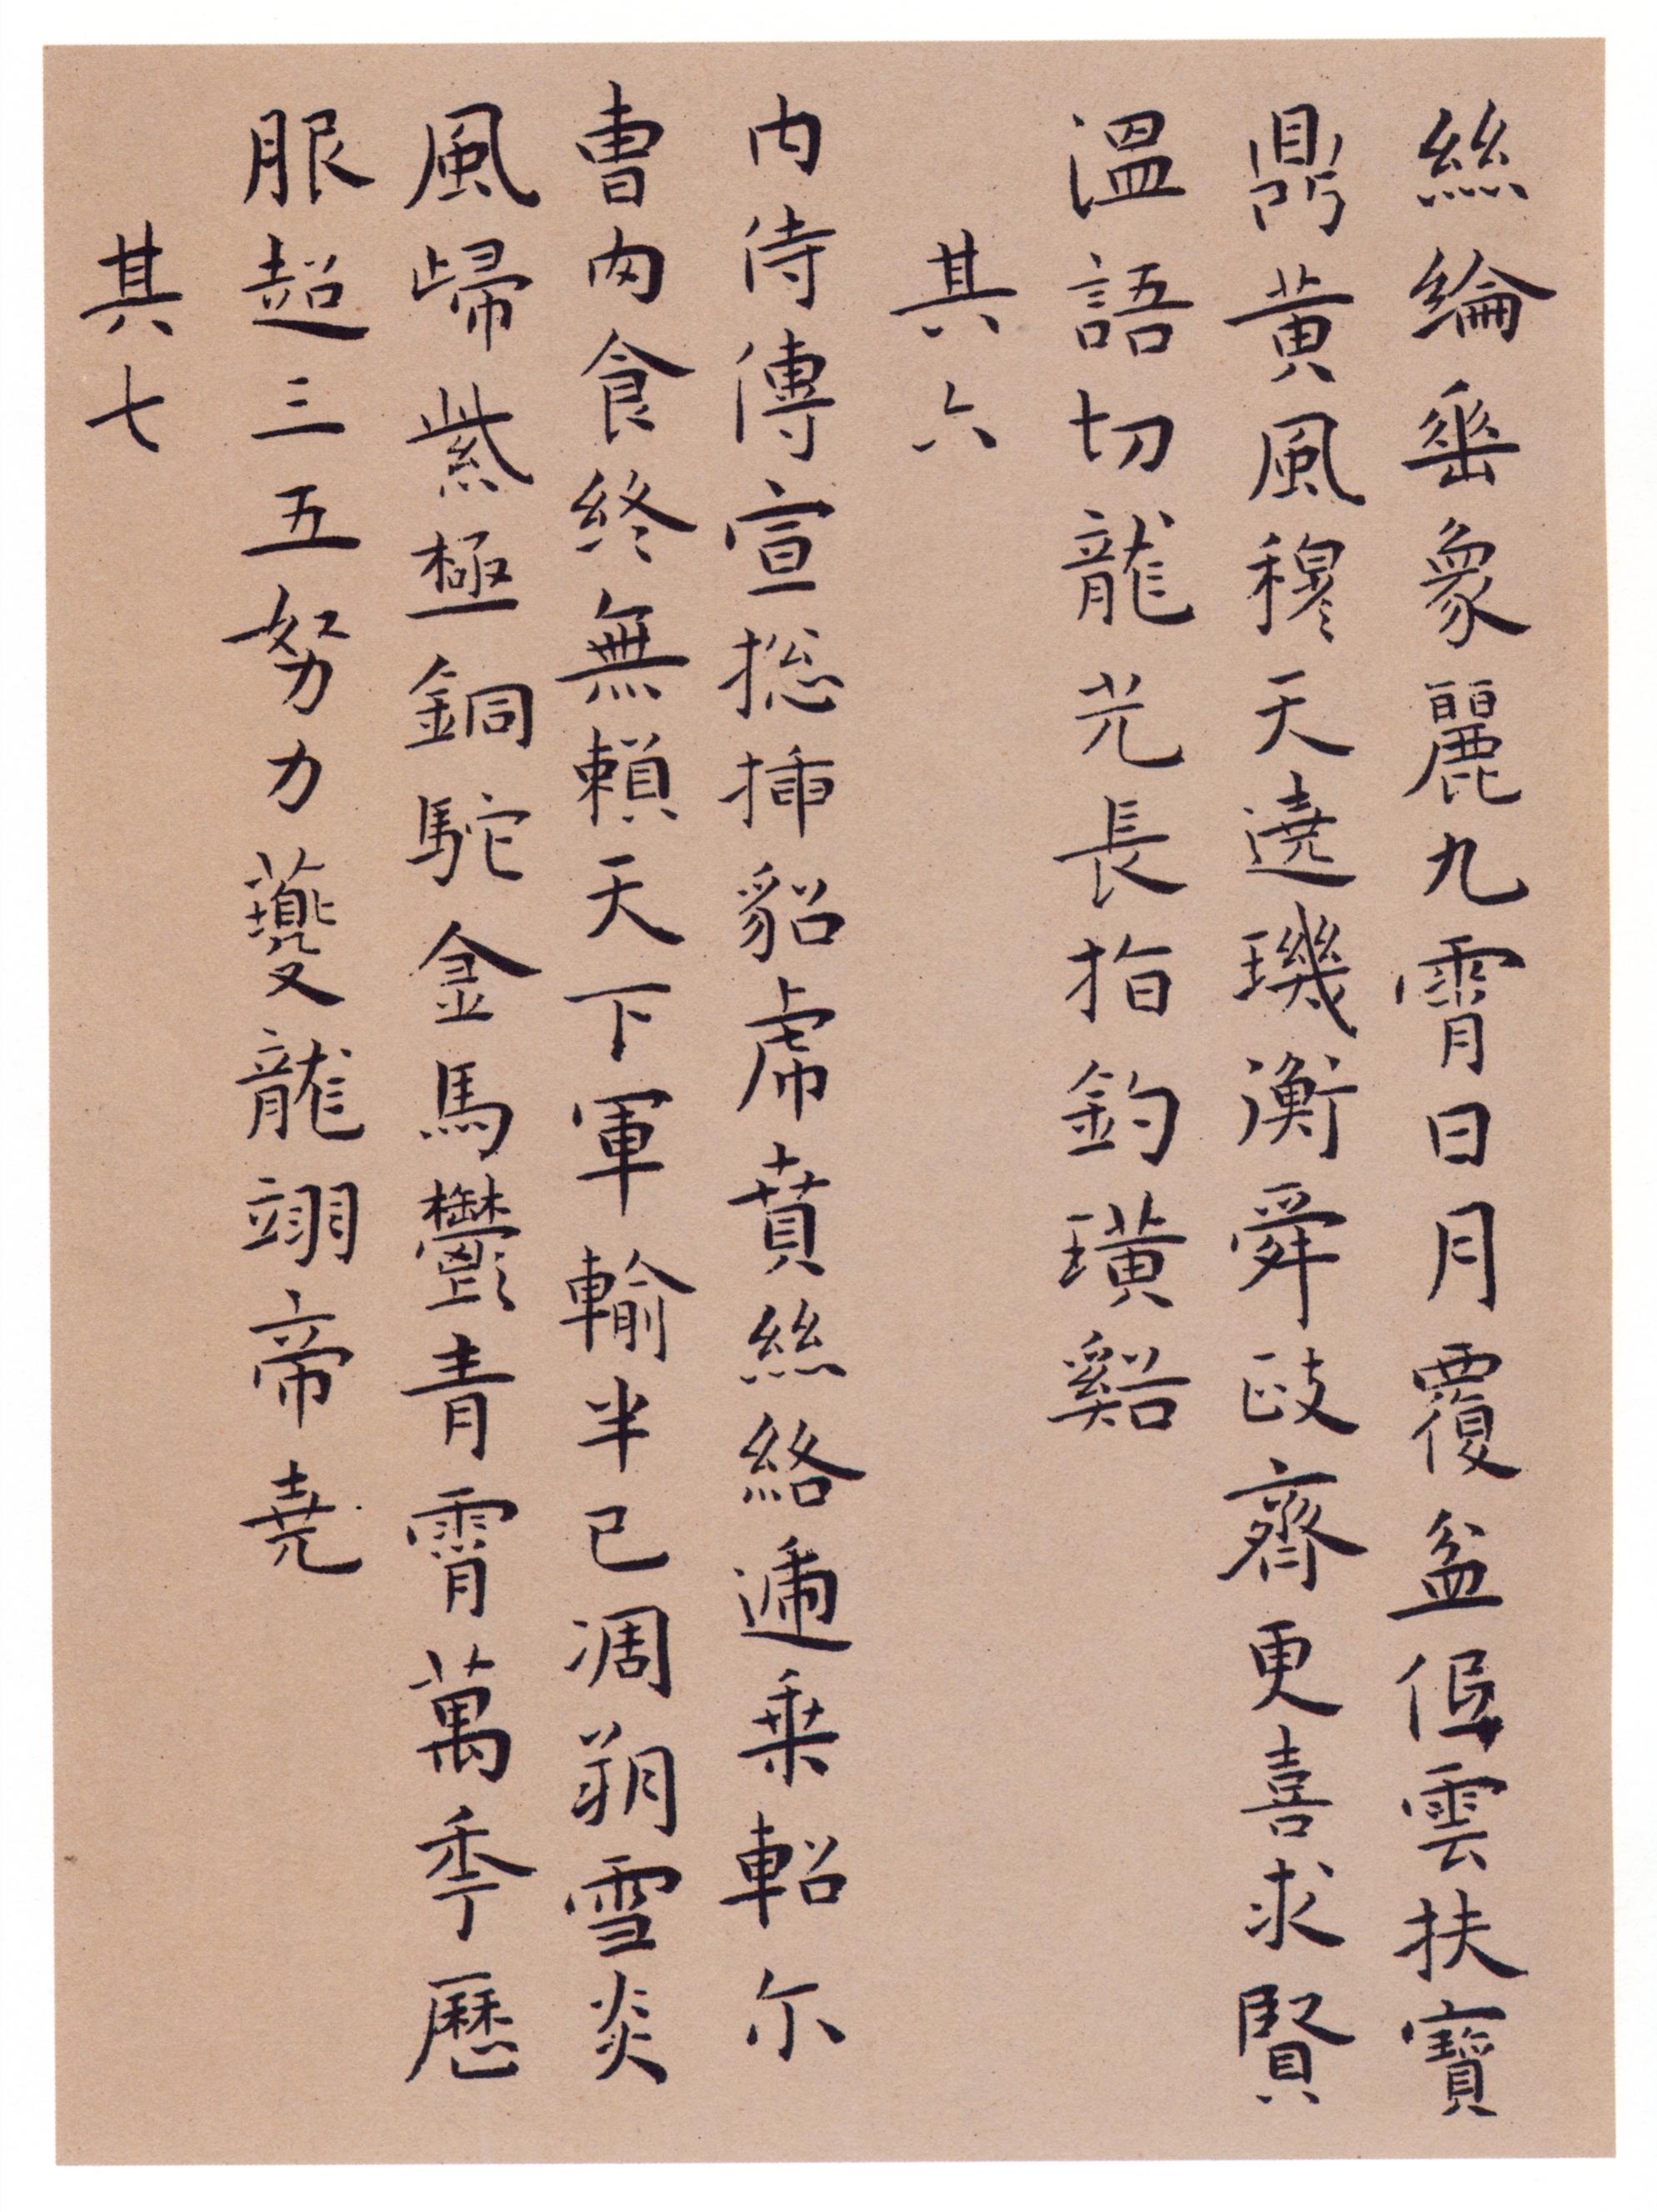 絲綸垂象麗九霄日月覆盆低雲扶寶
鼎黃風穆天遶璣衡舜政齊更喜求賢
溫語切龍光長指釣璜谿
其六
內侍傳宣揔插貂虎賁絲絡遞乘軺尔
曹肉食終無賴天下軍輸半已凋朔雪炎
風歸紫極銅駝金馬鬱青霄萬年歷
服超三五努力夔龍翊帝堯
其七